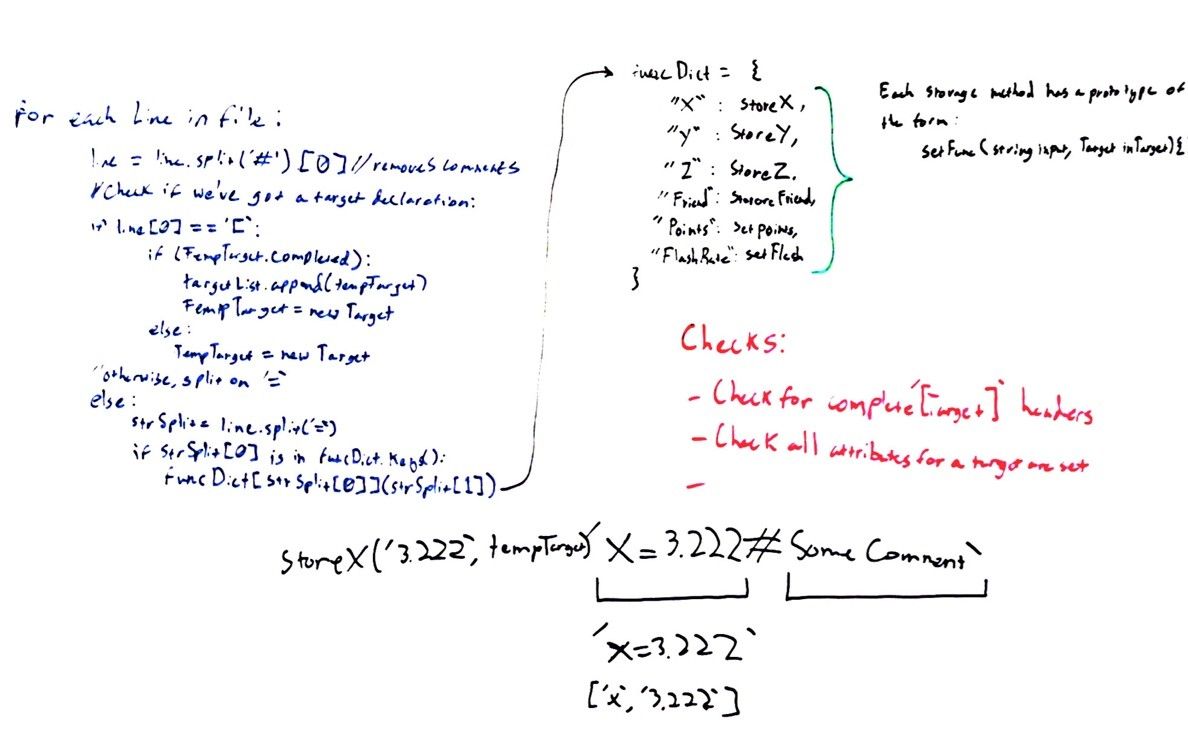 For each Line in file:
line = line.split('#')[0] // removes comments
// Check if we've got a target declaration:
if line[0] == '[':
if (TempTarget.completed):
targetList.append(tempTarget)
TempTarget = new Target
else:
TempTarget = new Target
// otherwise, split on '='
else:
strSplit = line.split('=')
if strSplit[0] is in funcDict.keys():
funcDict[strSplit[0]](strSplit[1])
funcDict = {
"X" : StoreX,
"y" : StoreY,
"Z" : StoreZ,
"Friend": StoreFriend,
"Points": Set points,
"FlashRate": set Flash
}
Each storage method has a prototype of
the form:
setFunc(string input, Target inTarget){
Checks:
- Check for complete '[Target]' headers
- Check all attributes for a target are set
-
storeX('3.222', tempTarget) 'X=3.222# Some Comment'
'X=3.222'
['x', '3.222']